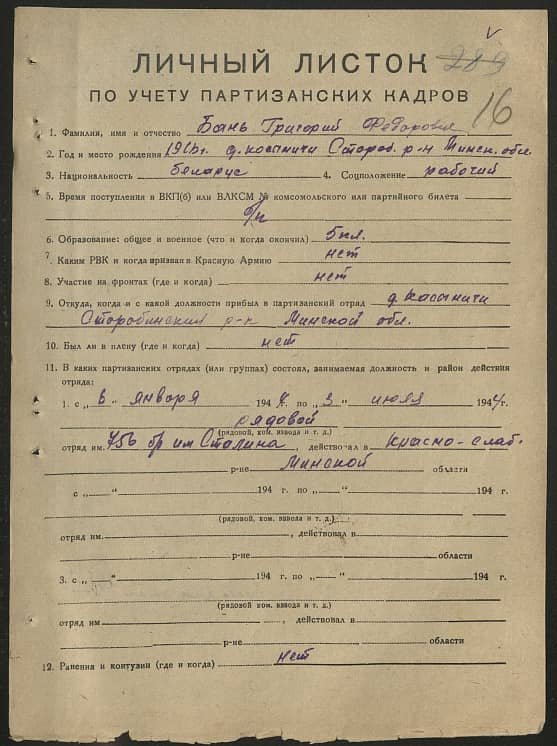 289
ЛИЧНЫЙ ЛИСТОК
ПО УЧЕТУ ПАРТИЗАНСКИХ КАДРОВ
16
1. Фамилия, имя и отчество Бань Григорий Федоровч
2. Год и место рождения г. д. Косыничи Стороб. р-н Минск. обл.
3. Национальность беларус 4. Соцположение рабочий
5. Время поступления в ВКП(б) или ВЛКСМ № комсомольского или партийного билета
б/п
6. Образование: общее и военное (что и когда окончил) 5 кл.
7. Каким РВК и когда призван в Красную Армию нет
8. Участие на фронтах (где и когда) нет
9. Откуда, когда и с какой должности прибыл в партизанский отряд д. Косыничи
Старобинский р-н Минской обл.
10. Был ли в плену (где и когда) нет
11. В каких партизанских отрядах (или группах) состоял, занимаемая должность и район действия
отряда:
1. с „ 6 “ января 194 4 г. по „ 3 “ июля 194 4 г.
рядовой
(рядовой, ком. взвода и т. д.)
отряд им. 756 бр им Сталина, действовал в Красно-слаб.
р-не Минской области
с „ “ 194 г. по „ “ 194 г.
(рядовой, ком. взвода и т. д.)
отряд им. , действовал в
р-не области
3. с „ “ 194 г. по „ “ 194 г.
(рядовой, ком. взвода и т. д.)
отряд им , действовал в
р-не области
12. Ранения и контузии (где и когда) нет